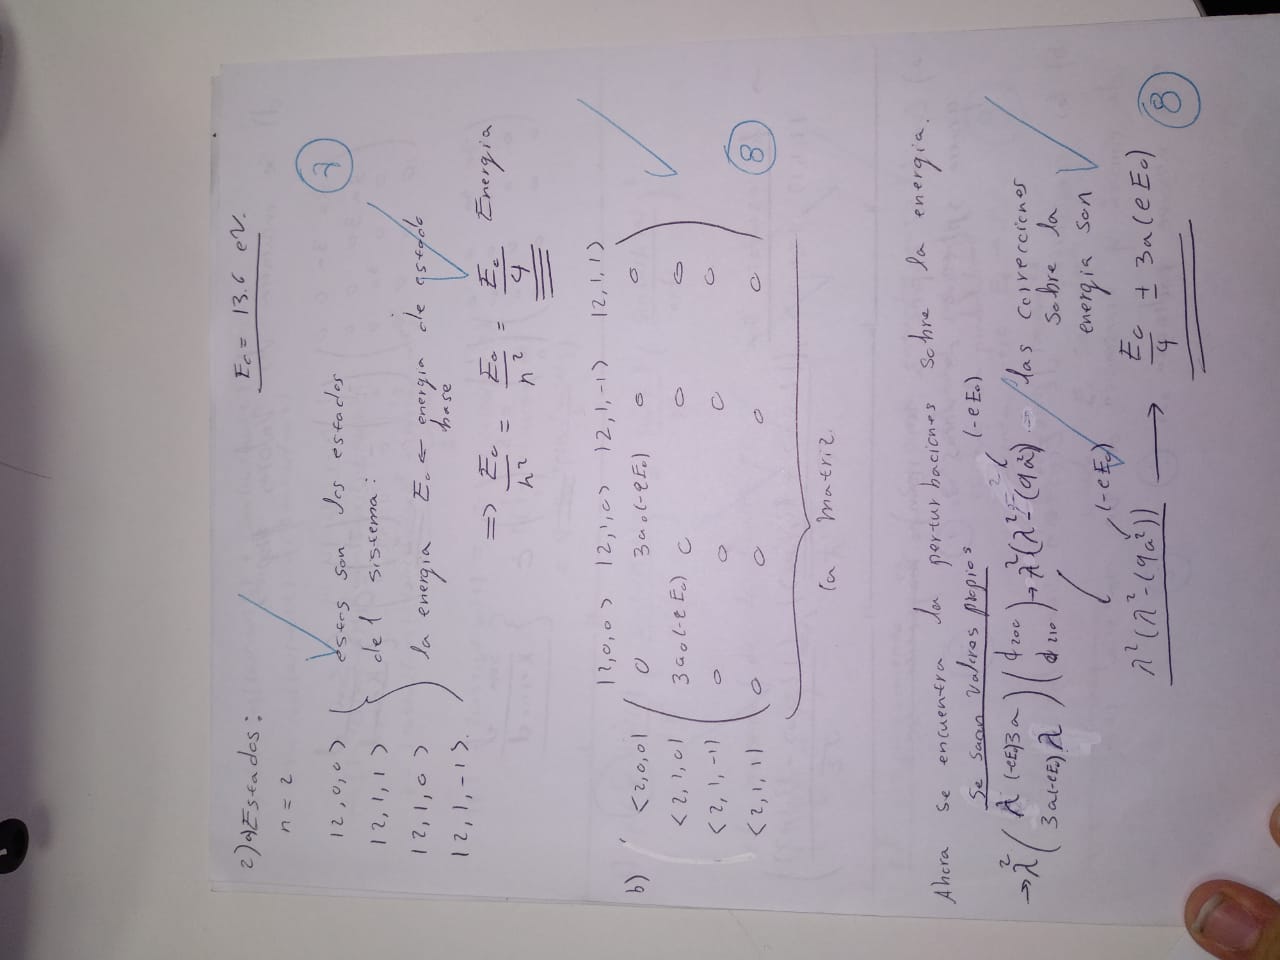 2) a) Estados:
n = 2
E₀ = 13.6 eV.
|2,0,0>
|2,1,1>
|2,1,0>
|2,1,-1>.
estos son los estados
del sistema:
la energia E₀ ← energia de estado
base
7
=> E₀/n² = E₀/n² = E₀/4 Energia
b)
|2,0,0> |2,1,0> |2,1,-1> |2,1,1>
<2,0,0| 0 3a₀(-eE₀) 0 0
<2,1,0| 3a₀(-eE₀) 0 0 0
<2,1,-1| 0 0 0 0
<2,1,1| 0 0 0 0
8
la matriz.
Ahora se encuentra la perturbaciones sobre la energia.
Se sacan valores propios
(-eE₀)
→ λ² ( λ (-eE₀)3a
3a(-eE₀) λ ) ( φ200
φ210 ) → λ²(λ² - (9a²)
las correrciones
sobre la
energia son
(-eE₀)
λ²(λ² - (9a²)) → E₀/4 ± 3a(eE₀)
8